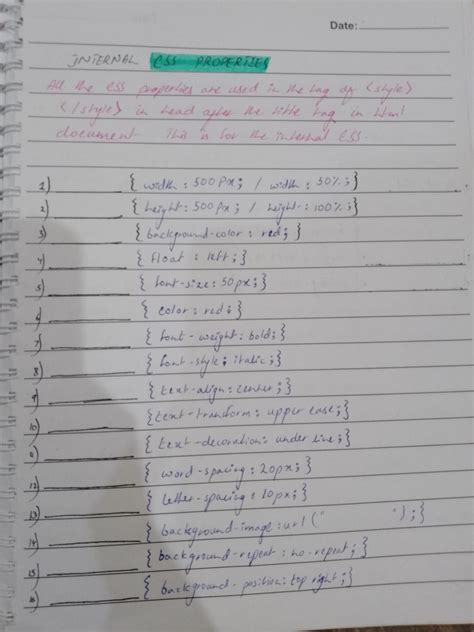 Date:
INTERNAL CSS PROPERTIES
All the CSS properties are used in the tag of <style>
</style> in head after the title tag in html
document. This is for the internal CSS.
1) { width : 500px; / width : 50%; }
2) { height : 500px; / height : 100%; }
3) { background-color : red; }
4) { float : left; }
5) { font-size : 50px; }
6) { color : red; }
7) { font-weight : bold; }
8) { font-style : italic; }
9) { text-align : center; }
10) { text-transform : upper case; }
{ text-decoration : under line; }
12) { word-spacing : 20px; }
13) { letter-spacing : 10px; }
14) { background-image : url (" "); }
15) { background-repeat : no-repeat; }
16) { background-position : top right; }